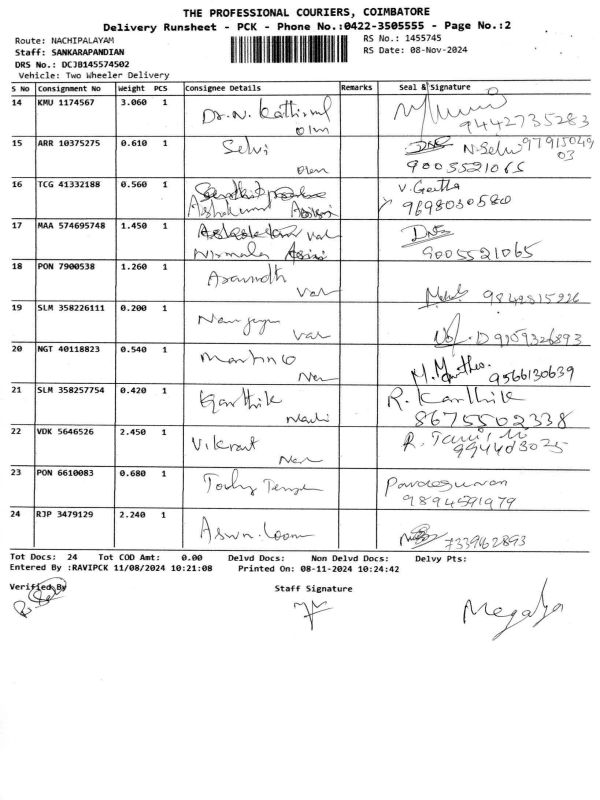 THE PROFESSIONAL COURIERS, COIMBATORE
Delivery Runsheet - PCK - Phone No.:0422-3505555 - Page No.:2
Route: NACHIPALAYAM RS No.: 1455745
Staff: SANKARAPANDIAN RS Date: 08-Nov-2024
DRS No.: DCJB145574502
Vehicle: Two Wheeler Delivery
S No Consignment No Weight PCS Consignee Details Remarks Seal & Signature
14 KMU 1174567 3.060 1 Dr. N. Kathirvel
9442735283
15 ARR 10375275 0.610 1 Selvi N. Selvi 9791504903
9005521065
16 TCG 41332188 0.560 1 V. Geetha
9698030580
17 MAA 574695748 1.450 1 Nirmala
9005521065
18 PON 7900538 1.260 1 Aravindh
Var 9842815226
19 SLM 358226111 0.200 1
Var 9109326893
20 NGT 40118823 0.540 1 Martin
9566130639
21 SLM 358257754 0.420 1 Karthik R. Karthik
8675502338
22 VDK 5646526 2.450 1 Vikrant R.
23 PON 6610083 0.680 1
9894591979
24 RJP 3479129 2.240 1 7339462893
Tot Docs: 24 Tot COD Amt: 0.00 Delvd Docs: Non Delvd Docs: Delvy Pts:
Entered By :RAVIPCK 11/08/2024 10:21:08 Printed On: 08-11-2024 10:24:42
Verified By Staff Signature